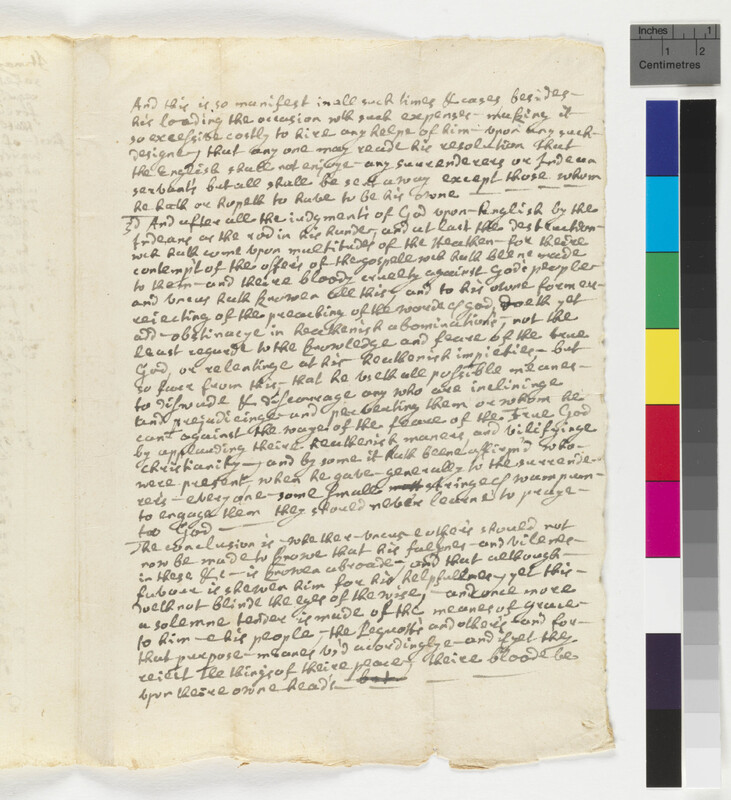 And this is so manifest in all such times & cases besides
his loading the occasion wth such expenses making it
so excessive costly to hire any helpe of him upon any such
designe, that any one may reade his resolution That
the English shall not enjoye any surrenderers or Indean
servants but all shall be sent away except those whom
he hath or hopeth to have to be his owne
3d And after all the iudgments of God upon English by the
Indeans as the rod in his hande, and at last the destruction
wch hath come upon multitudes of the Heathen for theire
contempt of the offers of the gospell wch hath beene made
to them and theire bloody cruelty against God's people
and uncus hath knowen all this, and to his owne former
rejecting of the preaching of the worde of God, doeth yet
add obstinacye in heathenish abominations, not the
least regarde to the knowledge and feare of the true
God, or relentinge at his heathenish impieties but
so farr from this that he useth all possible meanes
to diswade & discourrage any who are inclininge
and prejudicinge and perverting them or whom he
can against the wayes of the feare of the True God
by applauding theire heathenish maners, and vilifyinge
christianity, and by some it hath beene affirmd who
were present when he gave generally to the surrende-
rers every one some small stringes of wampum
to engage them they should never learne to praye
to God
The conclusion is whether uncus & others should not
now be made to knowe that his falsnes and vilenes
in these &c is knowen abroade and that although
favour is shewen him for his helpfullnes, yet this
doth not blinde the eyes of the wise, and once more
a solemne tender is made of the meanes of grace
to him & his people the Pequotts and others and for
that purpose meanes us'd acordinglye and if yet they
reiect the things of theire peace, theire bloode be
upon theire owne heads but
Inches 1
1 2
Centimetres